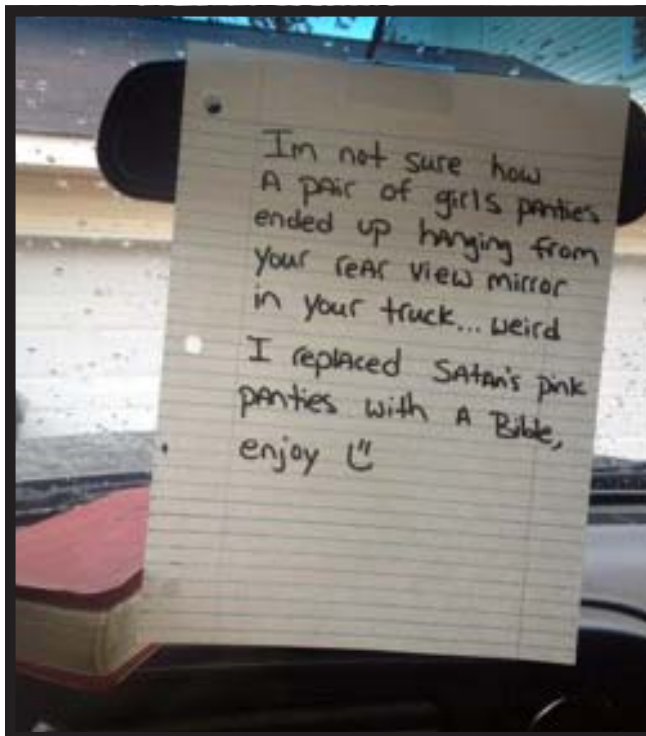 Im not sure how
A pair of girls panties
ended up hanging from
your rear view mirror
in your truck... weird
I replaced Satan's pink
panties with A Bible,
enjoy